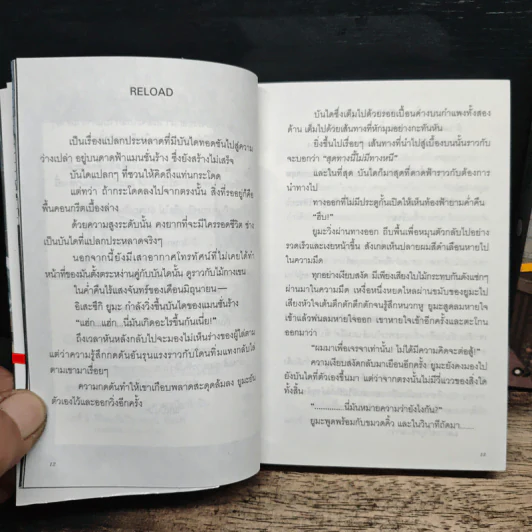 RELOAD
เป็นเรื่องแปลกประหลาดที่มีบันไดทอดชันไปสู่ความ
ว่างเปล่า อยู่บนดาดฟ้าแมนชั่นร้าง ซึ่งยังสร้างไม่เสร็จ
บันไดแปลกๆ ที่ชวนให้คิดถึงแท่นกระโดด
แต่ทว่า ถ้ากระโดดลงไปจากตรงนั้น สิ่งที่รออยู่ก็คือ
พื้นคอนกรีตเบื้องล่าง
ด้วยความสูงระดับนั้น คงยากที่จะมีใครรอดชีวิต ช่าง
เป็นบันไดที่แปลกประหลาดจริงๆ
นอกจากนี้ยังมีเสาอากาศโทรทัศน์ที่ไม่เคยได้ทำ
หน้าที่ของมันตั้งตระหง่านคู่กับบันไดนั้น ดูราวกับไม้กางเขน
ในค่ำคืนไร้แสงจันทร์ของเดือนมิถุนายน —
อิเสะซึกิ ยูมะ กำลังวิ่งขึ้นบันไดของแมนชั่นร้าง
“แฮ่ก ...แฮ่ก...นี่มันเกิดอะไรขึ้นกันเนี่ย!”
ถึงเวลาหันหลังกลับไปจะมองไม่เห็นร่างของผู้ไล่ตาม
แต่ว่าความรู้สึกกดดันอันรุนแรงราวกับโดนทิ่มแทงกลับไล่
ตามเขามาเรื่อยๆ
ความกดดันทำให้เขาเกือบพลาดสะดุดล้มลง ยูมะยัน
ตัวเองไว้และออกวิ่งอีกครั้ง
บันไดซึ่งเต็มไปด้วยรอยเปื้อนด่างบนกำแพงทั้งสอง
ด้าน เต็มไปด้วยเส้นทางที่หักมุมอย่างกะทันหัน
ยิ่งขึ้นไปเรื่อยๆ เส้นทางที่นำไปสู่เบื้องบนนั้นราวกับ
จะบอกว่า “สุดทางนี้ไม่มีทางหนี”
และในที่สุด บันไดก็มาสุดที่ดาดฟ้าราวกับต้องการ
นำทางไป
ทางออกที่ไม่มีประตูกั้นเปิดให้เห็นท้องฟ้ายามค่ำคืน
“ฮึบ!”
ยูมะวิ่งผ่านทางออก ถีบพื้นเพื่อหมุนตัวกลับไปอย่าง
รวดเร็วและเงยหน้าขึ้น สังเกตเห็นปลายผมสีดำเลือนหายไป
ในความมืด
ทุกอย่างเงียบสงัด มีเพียงเสียงใบไม้กระทบกันดังแซ่กๆ
ผ่านมาในความมืด เหงื่อหนึ่งหยดไหลผ่านขมับของยูมะไป
เสียงหัวใจเต้นตึกตักตึกตักจนรู้สึกหนวกหู ยูมะสูดลมหายใจ
เข้าแล้วพ่นลมหายใจออก เขาหายใจเข้าอีกครั้งและตะโกน
ออกมาว่า
“ผมมาเพื่อเจรจาเท่านั้น! ไม่ได้มีความคิดจะต่อสู้!”
ความเงียบสงัดกลับมาเยือนอีกครั้ง ยูมะยังคงมองไป
ยังบันไดที่ตัวเองขึ้นมา แต่ว่าจากตรงนั้นไม่มีวี่แววของสิ่งใด
ทั้งสิ้น
“............. นี่มันหมายความว่ายังไงกัน?”
ยูมะพูดพร้อมกับขมวดคิ้ว และในวินาทีถัดมา......